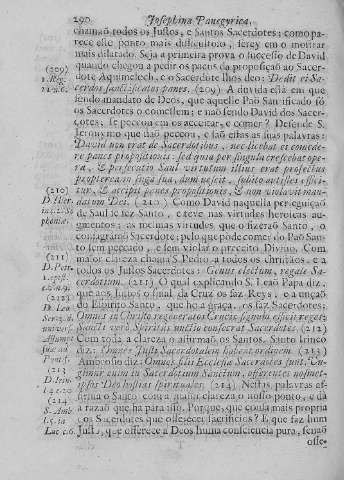 290 Josephina Panegyrica.
chamaõ todos os Justos, e Santos Sacerdotes; como pa-
rece este ponto mais difficultoso, serey em o mostrar
mais dilatado. Seja a primeira prova o successo de David
(209) quando chegou a pedir os paens da proposiçaõ ao Sacer-
1. Reg. dote Aquimelech, e o Sacerdote lhos deo: Dedit ei Sa-
21. v. 6. cerdos sanctificatos panes. (209) A duvida está em que
sendo mandato de Deos, que aquelle Paõ Sanctificado só
os Sacerdotes o comessem; e naõ sendo David dos Sacer-
dotes; se peccou em os aceitar, e comer? Defende S.
Jeronymo que naõ peccou, e saõ estas as suas palavras:
David non erat de Sacerdotibus, nec licebat ei comede-
re panes propositionis, sed quia per singula crescebat ope-
ra, & persecutio Saul virtutum illius erat profectus
(210) & accepit panes propositionis, & non violavit man-
D. Hier. data Dei. (210) Como David naquella perseguiçaõ
de Saul se fez Santo, e teve nas virtudes heroicas au-
gmentos; as mesmas virtudes, que o fizeraõ Santo, o
consagraraõ Sacerdote; pelo que pode comer do Paõ San-
(211) to sem peccado, e sem violar o preceito Divino. Com
D. Petr. mayor clareza chama S. Pedro, a todos os christãos, e a
1. epist. todos os Justos Sacerdotes: Genus electum, regale Sa-
c. 2. n. 9. cerdotium. (211) O qual explicando S. Leaõ Papa diz,
(212) que aos Justos o sinal da Cruz os faz Reys, e a unçaõ
D. Leo do Espirito Santo, que he a graça, os faz Sacerdotes:
Omnes in Christo regeneratos Crucis signum efficit reges,
Sancti verò Spiritus unctio consecrat Sacerdotes. (212)
Assumpt. Com toda a clareza o affirmaõ os Santos. Santo Irineo
diz: Omnes Justi Sacerdotalem habent ordinem. (213)
(213) Ambrosio diz: Omnes filii Ecclesiæ Sacerdotes sunt, Un-
gimur enim in Sacerdotium Sanctum, offerentes nosmet-
ipsos Deo hostias spirituales. (214) Nestas palavras af-
(214) firma o Santo com a mayor clareza o nosso ponto, e dá
S. Amb. a razaõ que ha para isso. Porque, que cousa mais propria
dos Sacerdotes que offerecer sacrificios? E que faz hum
Luc. c. 6. Justo, que offerece a Deos huma consciencia pura, senaõ
offe-